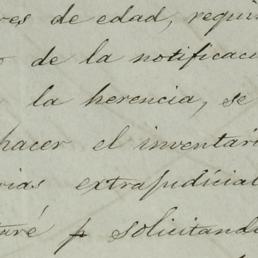 res de edad, requi
de la notificaci
la herencia, se
hacer el inventari
rias extrajudicial
taré p solicitando